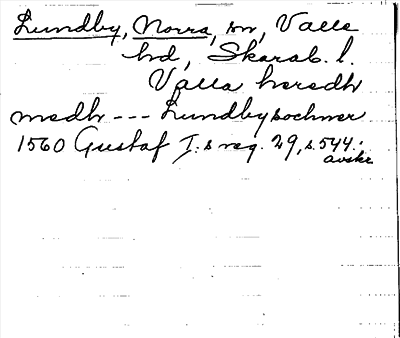 Lundby, Norra, sn, Valle
hd, Skarab. l.
Valla heredh
medh --- Lundby sochner
1560 Gustaf I:s reg. 29, s. 544.
avskr